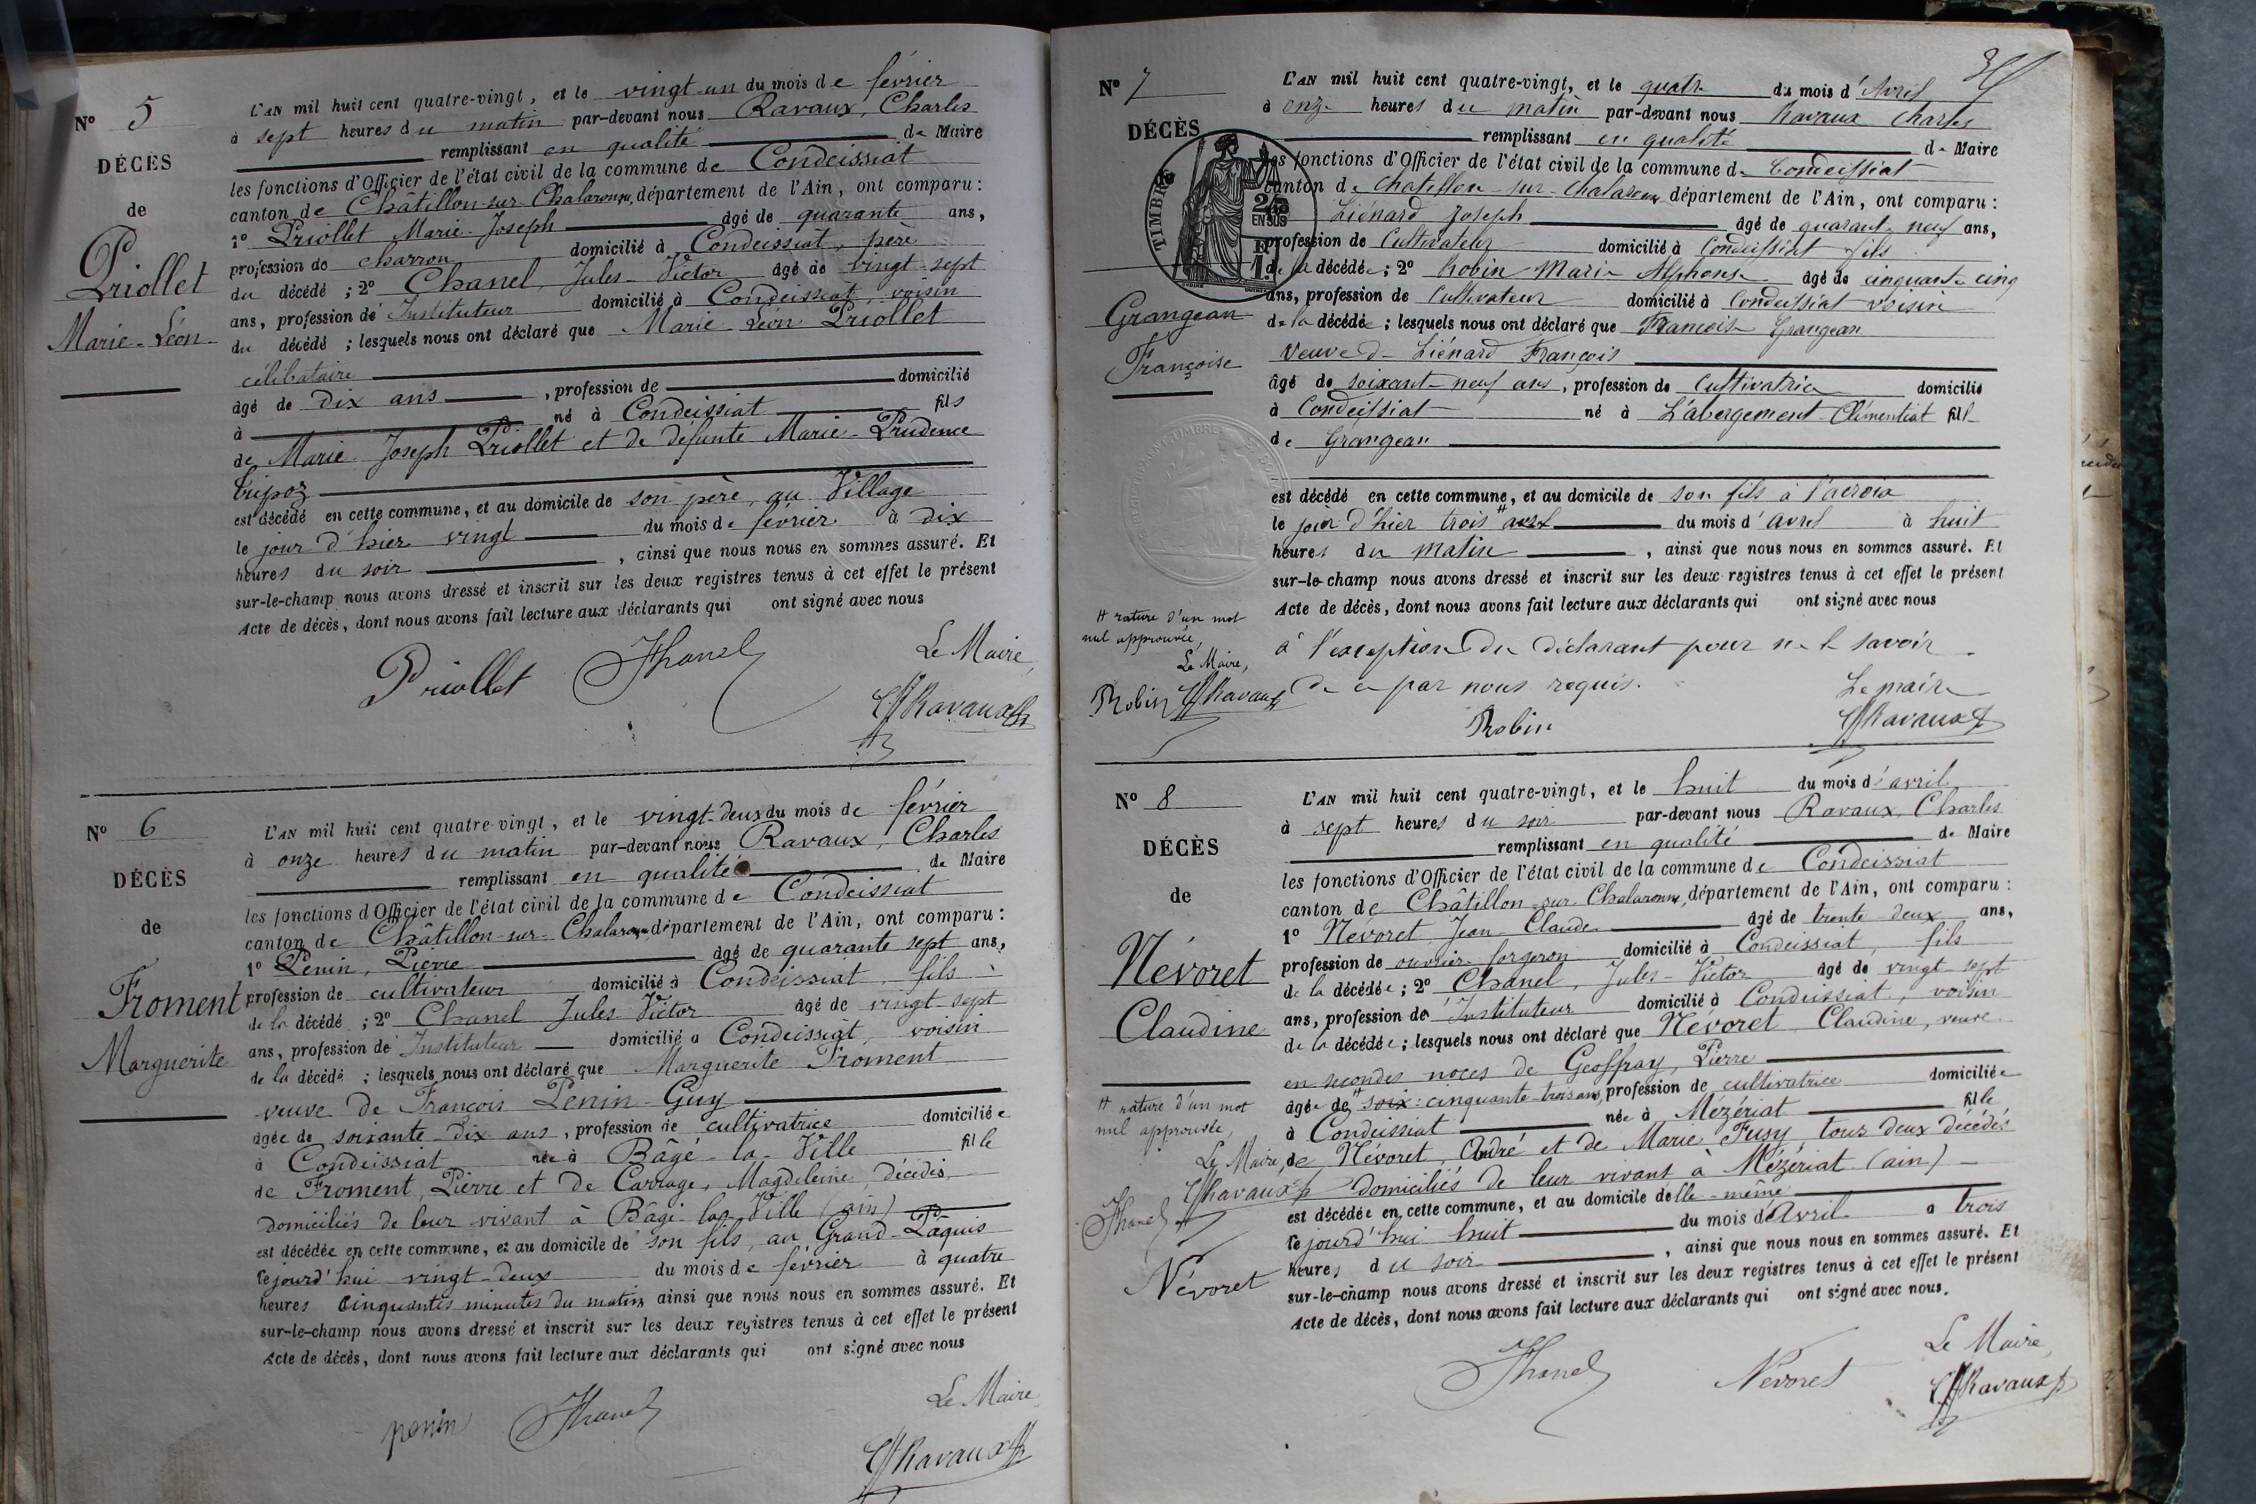 N° 5
DÉCÈS
de
Priollet
Marie-Léon
L'AN mil huit cent quatre-vingt, et le vingt-un du mois de février
à sept heures du matin par-devant nous Ravaux, Charles
remplissant en qualité de Maire
les fonctions d'Officier de l'état civil de la commune de Condeissiat
canton de Châtillon-sur-Chalaronne, département de l'Ain, ont comparu :
1° Priollet Marie-Joseph âgé de quarante ans,
profession de charron domicilié à Condeissiat, père
du décédé ; 2° Chanel, Jules-Victor âgé de vingt-sept
ans, profession d'Instituteur domicilié à Condeissiat, voisin
du décédé ; lesquels nous ont déclaré que Marie-Léon Priollet
célibataire
âgé de dix ans, profession de domicilié
à né à Condeissiat fils
de Marie-Joseph Priollet et de défunte Marie-Prudence
Tripoz
est décédé en cette commune, et au domicile de son père, au Village
le jour d'hier vingt du mois de février à dix
heures du soir, ainsi que nous nous en sommes assuré. Et
sur-le-champ nous avons dressé et inscrit sur les deux registres tenus à cet effet le présent
Acte de décès, dont nous avons fait lecture aux déclarants qui ont signé avec nous
Le Maire,
Priollet JChanel ChRavaux
N° 6
DÉCÈS
de
Froment
Marguerite
L'AN mil huit cent quatre-vingt, et le vingt-deux du mois de février
à onze heures du matin par-devant nous Ravaux, Charles
remplissant en qualité de Maire
les fonctions d'Officier de l'état civil de la commune de Condeissiat
canton de Châtillon-sur-Chalaronne, département de l'Ain, ont comparu :
1° Penin, Pierre âgé de quarante sept ans,
profession de cultivateur domicilié à Condeissiat, fils
de la décédé ; 2° Chanel Jules-Victor âgé de vingt-sept
ans, profession d'Instituteur domicilié à Condeissiat, voisin
de la décédé ; lesquels nous ont déclaré que Marguerite Froment
veuve de François Penin-Guy
âgée de soixante-dix ans, profession de cultivatrice domiciliée
à Condeissiat née à Bâgé-la-Ville fille
de Froment, Pierre et de Carrage, Magdeleine, décédés,
domiciliés de leur vivant à Bâgé-la-Ville (ain)
est décédée en cette commune, et au domicile de son fils, au Grand-Pâquis
le jourd'hui vingt-deux du mois de février à quatre
heures cinquantes minutes du matin ainsi que nous nous en sommes assuré. Et
sur-le-champ nous avons dressé et inscrit sur les deux registres tenus à cet effet le présent
Acte de décès, dont nous avons fait lecture aux déclarants qui ont signé avec nous
Le Maire
penin JChanel ChRavaux
N° 7
DÉCÈS
de
TIMBRE
25
EN SUS
Grangean
Françoise
L'AN mil huit cent quatre-vingt, et le quatre du mois d'Avril
à onze heures du matin par-devant nous Ravaux Charles
remplissant en qualité de Maire
les fonctions d'Officier de l'état civil de la commune de Condeissiat
canton de Chatillon-sur-Chalaronne, département de l'Ain, ont comparu :
Liénard Joseph âgé de quarante-neuf ans,
profession de Cultivateur domicilié à Condeissiat fils
de la décédée ; 2° Robin Marie Alphonse âgé de cinquante cinq
ans, profession de Cultivateur domicilié à Condeissiat voisin
de la décédée ; lesquels nous ont déclaré que Françoise Grangean
veuve de Liénard François
âgé de soixante-neuf ans, profession de Cultivatrice domicilié
à Condeissiat né à L'abergement-Clémentiat fille
de Grangean
est décédé en cette commune, et au domicile de son fils à Lacroix
le jour d'hier trois avril du mois d'avril à huit
heures du matin, ainsi que nous nous en sommes assuré. Et
sur-le-champ nous avons dressé et inscrit sur les deux registres tenus à cet effet le présent
Acte de décès, dont nous avons fait lecture aux déclarants qui ont signé avec nous
à l'exception du déclarant pour ne le savoir
de ce par nous requis.
# rature d'un mot
nul approuvée,
Le Maire,
Robin ChRavaux
Le maire
Robin ChRavaux
N° 8
DÉCÈS
de
Névoret
Claudine
L'AN mil huit cent quatre-vingt, et le huit du mois d'avril
à sept heures du soir par-devant nous Ravaux, Charles
remplissant en qualité de Maire
les fonctions d'Officier de l'état civil de la commune de Condeissiat
canton de Châtillon-sur-Chalaronne, département de l'Ain, ont comparu :
1° Névoret Jean-Claude âgé de trente-deux ans,
profession de ouvrier forgeron domicilié à Condeissiat, fils
de la décédée ; 2° Chanel, Jules-Victor âgé de vingt-sept
ans, profession d'Instituteur domicilié à Condeissiat, voisin
de la décédée ; lesquels nous ont déclaré que Névoret Claudine, veuve
en secondes noces de Geoffray, Pierre
âgée de # soix: cinquante-trois ans, profession de cultivatrice domiciliée
à Condeissiat née à Mézériat fille
de Névoret, André et de Marie Fusy, tous deux décédés
domiciliés de leur vivant à Mézériat (ain)
est décédée en cette commune, et au domicile d'elle-même
le jourd'hui huit du mois d'Avril à trois
heures du soir, ainsi que nous nous en sommes assuré. Et
sur-le-champ nous avons dressé et inscrit sur les deux registres tenus à cet effet le présent
Acte de décès, dont nous avons fait lecture aux déclarants qui ont signé avec nous.
# rature d'un mot
nul approuvée,
Le Maire,
ChRavaux
JChanel
Névoret
Le Maire,
JChanel Névoret ChRavaux